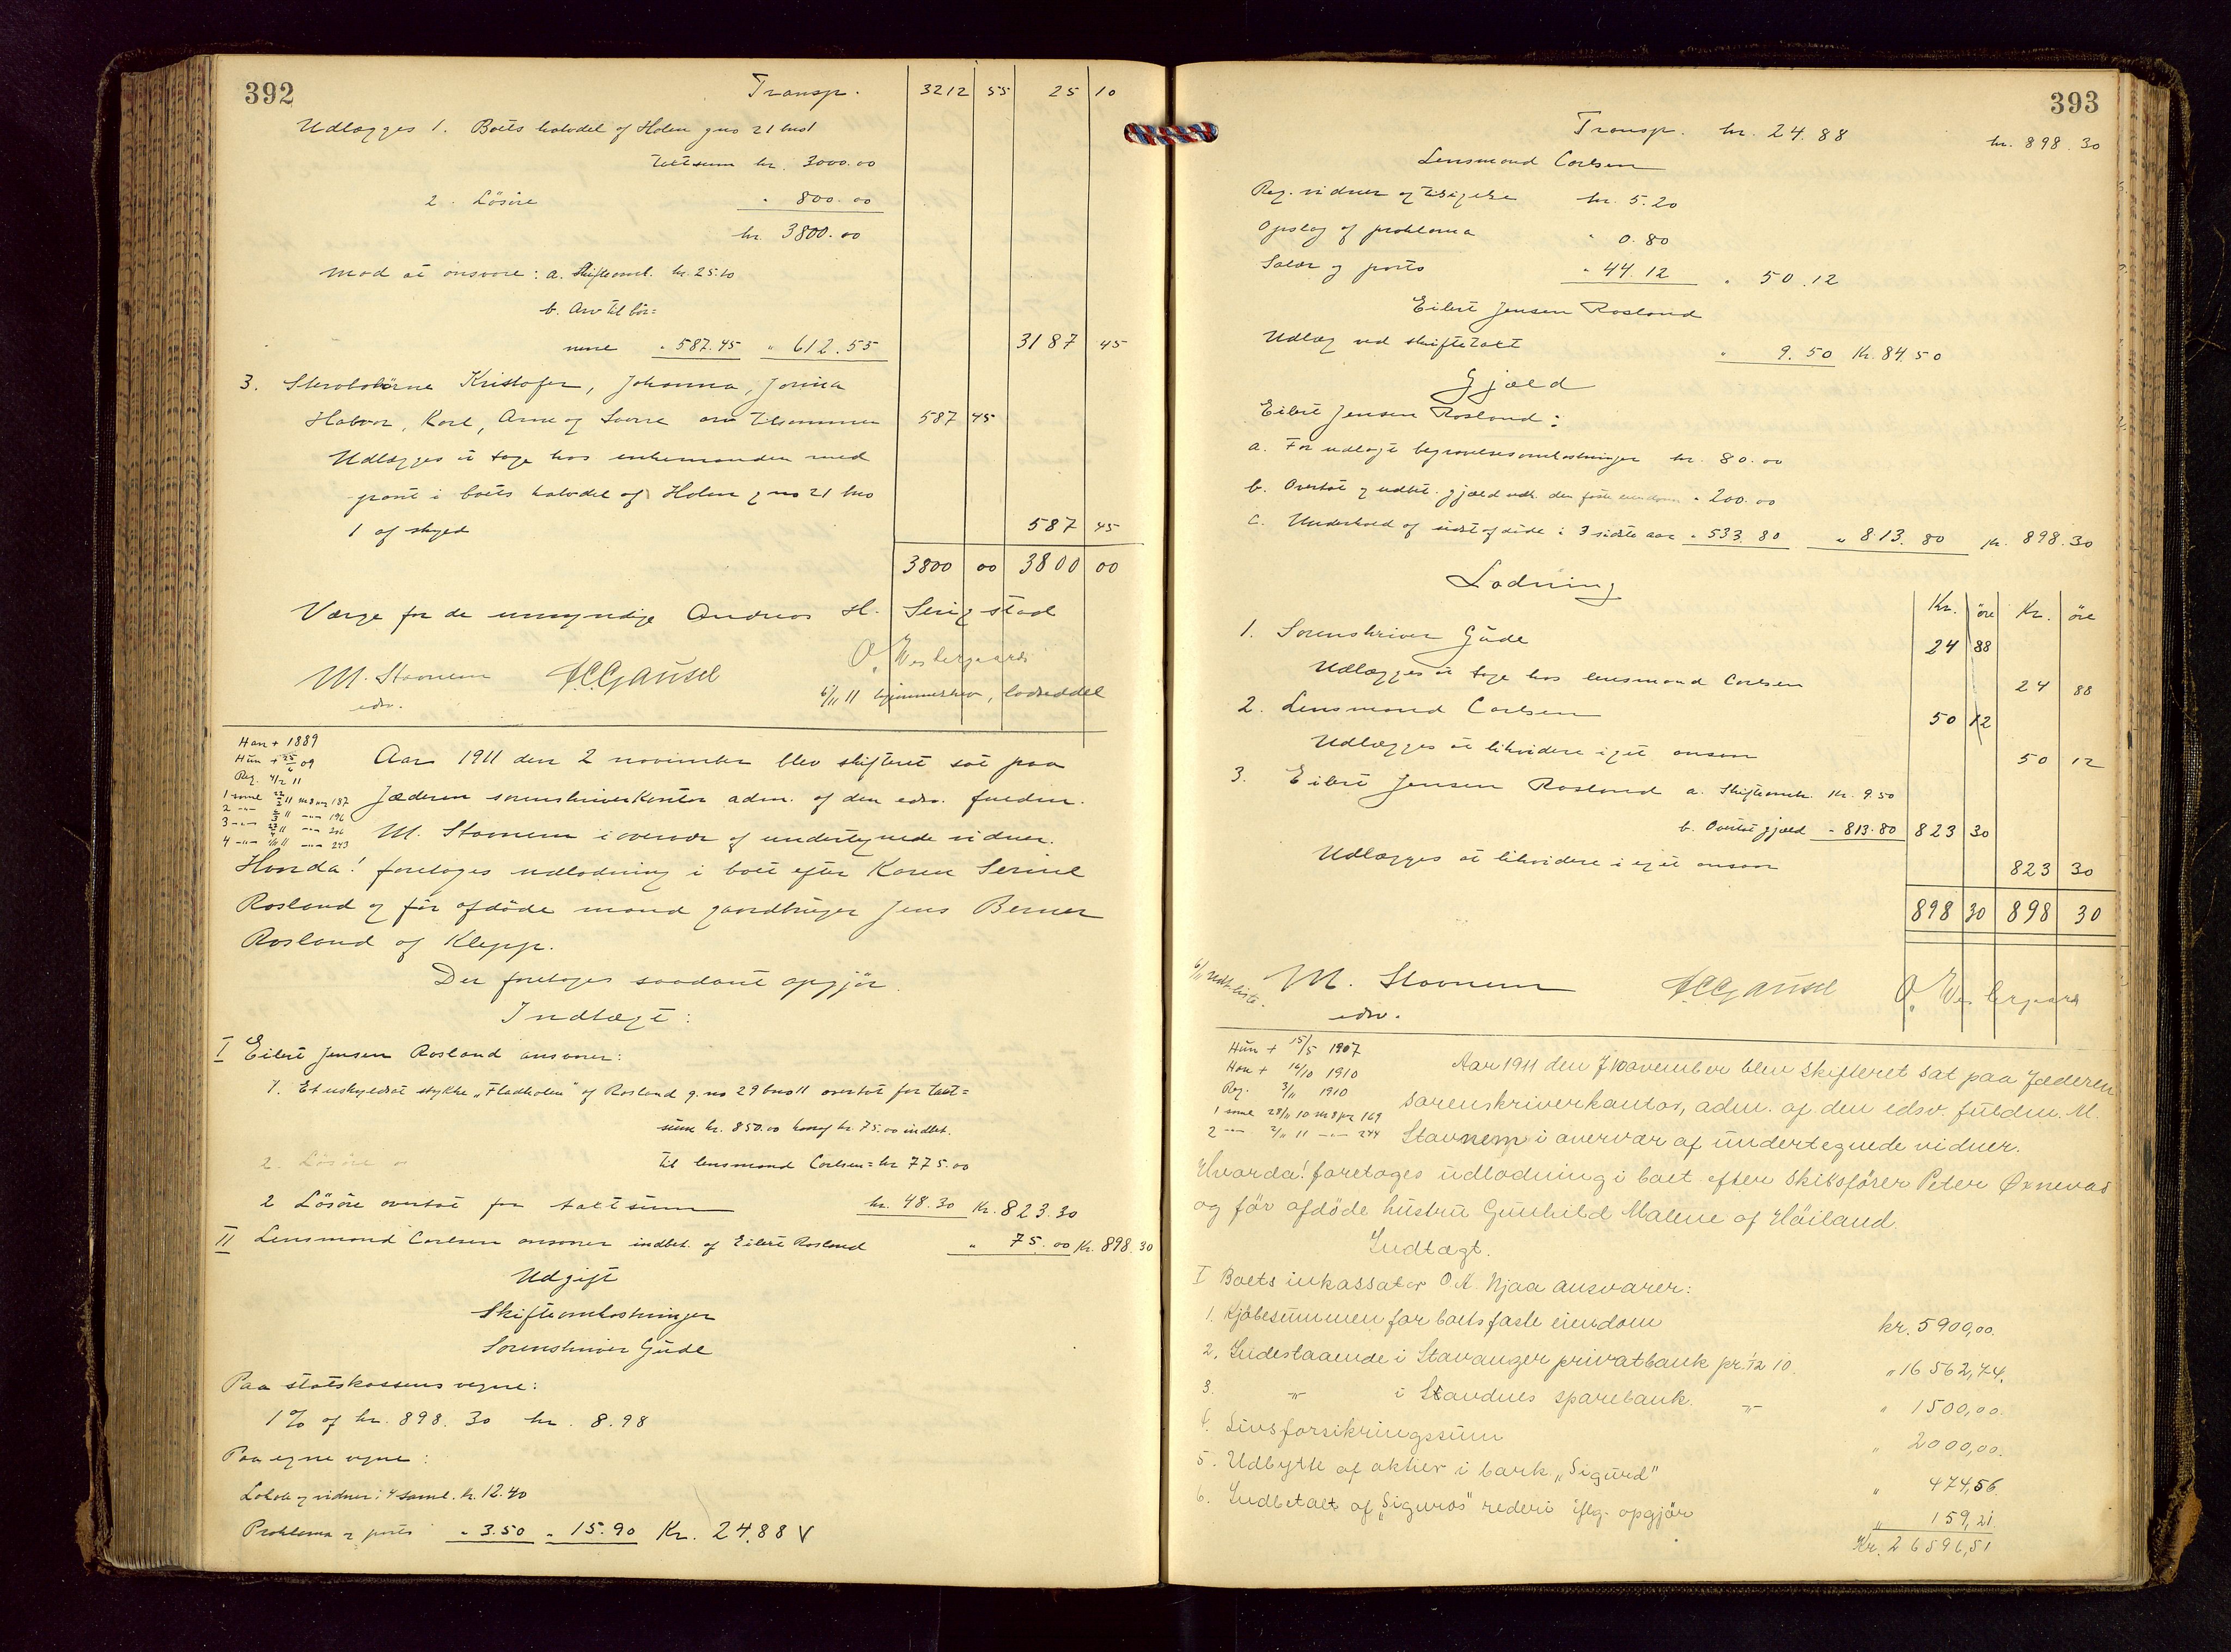 392
Transp. 3212 55 25 10
Udlægges 1. Boets halvdel af Holen gno 21 bno 1
taktsum kr. 3000.00
2. Lösöre " 800.00
kr. 3800.00
mod at ansvare: a. Skifteomk. kr. 25.10
b. Arv til bör=
nene " 587.45 " 612.55 3187 45
3. Stervbobörnene Kristofer, Johanna, Jorina
Halvor, Karl, Arne og Sverre arv tilsammen 587 45
Udlægges at tage hos enkemanden med
pant i boets halvdel af Holen gno 21 bno
1 af skyld 587 45
3800 00 3800 00
Værge for de umyndige Andreas H. Serigstad
M. Stavnem A.C. Gausel O. Westergaard
edsv. 6/11 11 hjemmelsbrev, lodseddel
Han + 1889
Hun + 25/6 09
Reg. 4/2 11
1 saml 22/2 11 m 8 pr 187
2 -"- 2/3 11 -"- 196
3 -"- 27/4 11 -"- 206
4 -"- 2/11 11 -"- 243
Aar 1911 den 2 november blev skifteret sat paa
Jæderen sorenskriverkontor adm. af den edsv. fuldm.
M. Stavnem i overvær af undertegnede vidner.
Hvorda! foretages udlodning i boet efter Karen Serine
Rosland og för afdöde mand gaardbruger Jens Berner
Rosland af Klepp.
Der foretoges saadant opgjör.
Indtægt:
I Eilert Jensen Rosland ansvarer:
1. Et uskyldsat stykke "Fladholen" af Rosland g. no 29 bno 11 overtat for takt=
sum kr. 850.00 herav kr. 75.00 indbet.
til lensmand Carlsen = kr 775.00
2. Lösöre o
2 Lösöre overtat for taktsum kr. 48.30 Kr. 823.30
II Lensmand Carlsen ansvarer indbet. af Eilert Rosland " 75.00 Kr. 898.30
Udgift
Skifteomkostninger
Sorenskriver Gude
Paa statskassens vegne:
1% af kr. 898.30 kr. 8.98
Paa egne vegne:
Lokale og vidner i 4 saml. kr. 12.40
Proklama & porto " 3.50 " 15.90 Kr. 24.88 V
393
Transp. kr. 24.88 kr. 898.30
Lensmand Carlsen
Reg. vidner og tilsigelse kr. 5.20
Opslag af proklama " 0.80
Salær og porto " 44.12 " 50.12
Eilert Jensen Rosland
Udlæg ved skiftetakt " 9.50 Kr. 84.50
Gjæld
Eilert Jensen Rosland:
a. For udlagt begravelsesomkostninger kr. 80.00
b. Overtat & udbet. gjæld vedk. den faste eiendom " 200.00
c. Underhold af sidst afdöde i 3 sidste aar " 533.80 " 813.80 Kr. 898.30
Lodning
Kr. öre Kr. öre
1. Sorenskriver Gude 24 88
Udlægges at tage hos lensmand Carlsen 24 88
2. Lensmand Carlsen 50 12
Udlægges at likvidere i eget ansvar 50 12
3. Eilert Jensen Rosland a. Skifteomk. Kr. 9.50
b. Overtat gjæld " 813.80 823 30
Udlægges at likvidere i eget ansvar 823 30
898 30 898 30
6/11 Udl. liste.
M. Stavnem A.C. Gausel O. Westergaard
edsv.
Hun + 15/5 1907
Han + 16/10 1910
Reg. 3/11 1910
1 saml 28/11 10 m 8 pr 169
2 -"- 7/11 11 -"- 244
Aar 1911 den 7 november blev skifteret sat paa Jæderen
sorenskriverkontor, adm. af den edsv. fuldm. M.
Stavnem i overvær af undertegnede vidner.
Hvorda! foretages udlodning i boet efter skibsförer Peter Øxnevad
og för afdöde hustru Gunhild Malene af Höiland.
Indtægt.
I Boets inkassator O. A. Njaa ansvarer:
1. Kjöbesummen for boets faste eiendom kr. 5900,00.
2. Indestaaende i Stavanger privatbank pr. 1/12 10. " 16562,74.
3. -"- iStavanes sparebank. -"- " 1500,00.
4. Livsforsikringssum " 2000,00.
5. Udbytte af aktier i bark "Sigurd" " 474,56
6. Indbetalt af "Sigurds" rederi iflg. opgjör " 159,21
Kr. 26596,51